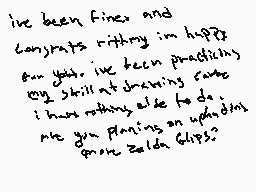 ive been fine. and
Congrats rithmy im happy
for you. ive been practicing
my skill at drawing cause
i have nothing else to do.
are you planing on uploading
more zelda clips?